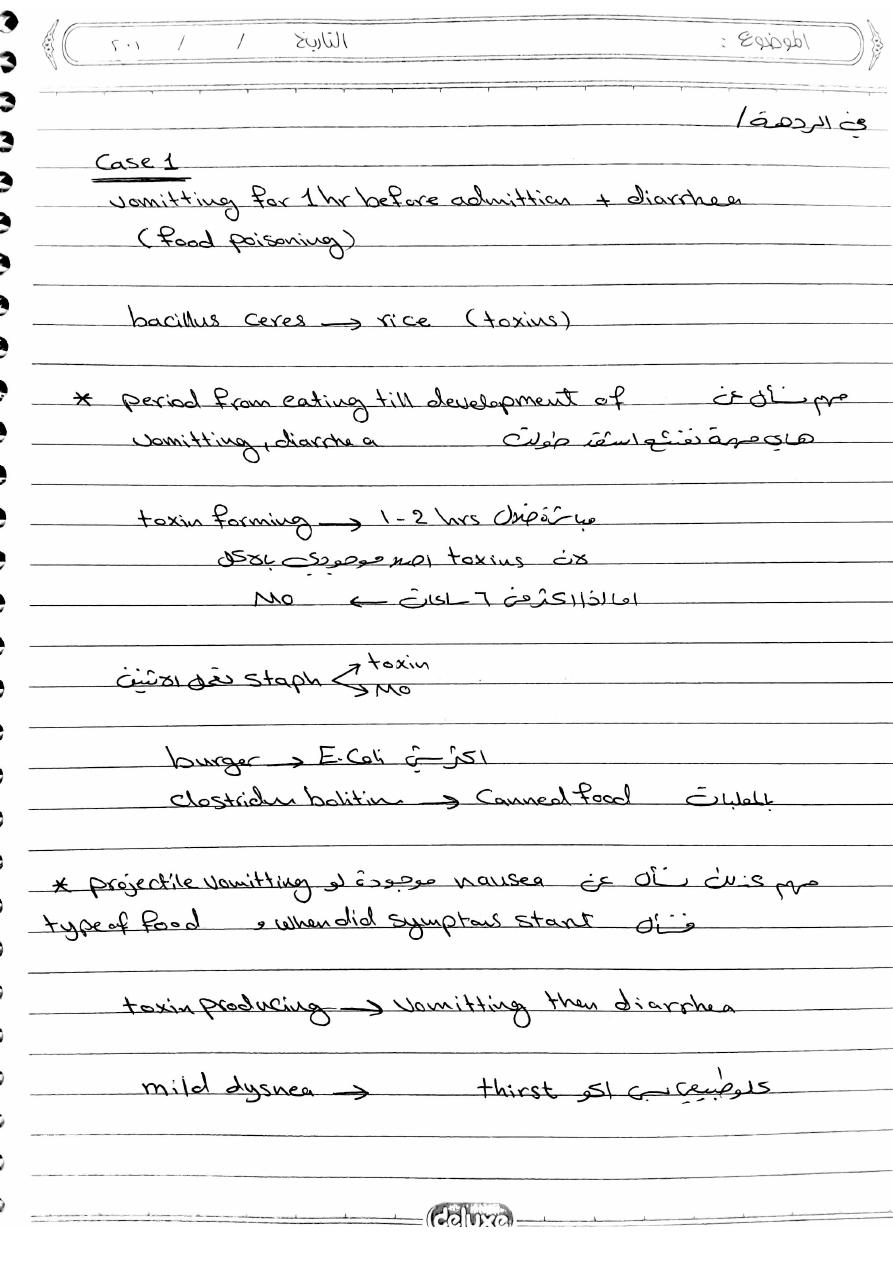 الموضوع : التاريخ / / ٢٠١
في الردهة /
Case 1
vomitting for 1hr before admittion + diarrhea
(food poisoning)
bacillus ceres → rice (toxins)
* period from eating till development of مهم نسأل عن
vomitting, diarrhea هاي مهمة
toxin forming → 1-2 hrs مباشة خلال
لان toxins اصلا موجودة بالاكل
اما اذا اكثر من ٦ ساعات ← MO
staph نقدر الاثنين toxin
MO
burger → E.Coli اكثر شي
clostridum bolitim → Canned food بالمعلبات
* projectile vomitting موجودة لو nausea مهم كذلك نسأل عن
type of food و when did symptoms start فنسأل
toxin producing → vomitting then diarrhea
mild dysnea → thirst كلو طبيعي بس اكو
deluxe